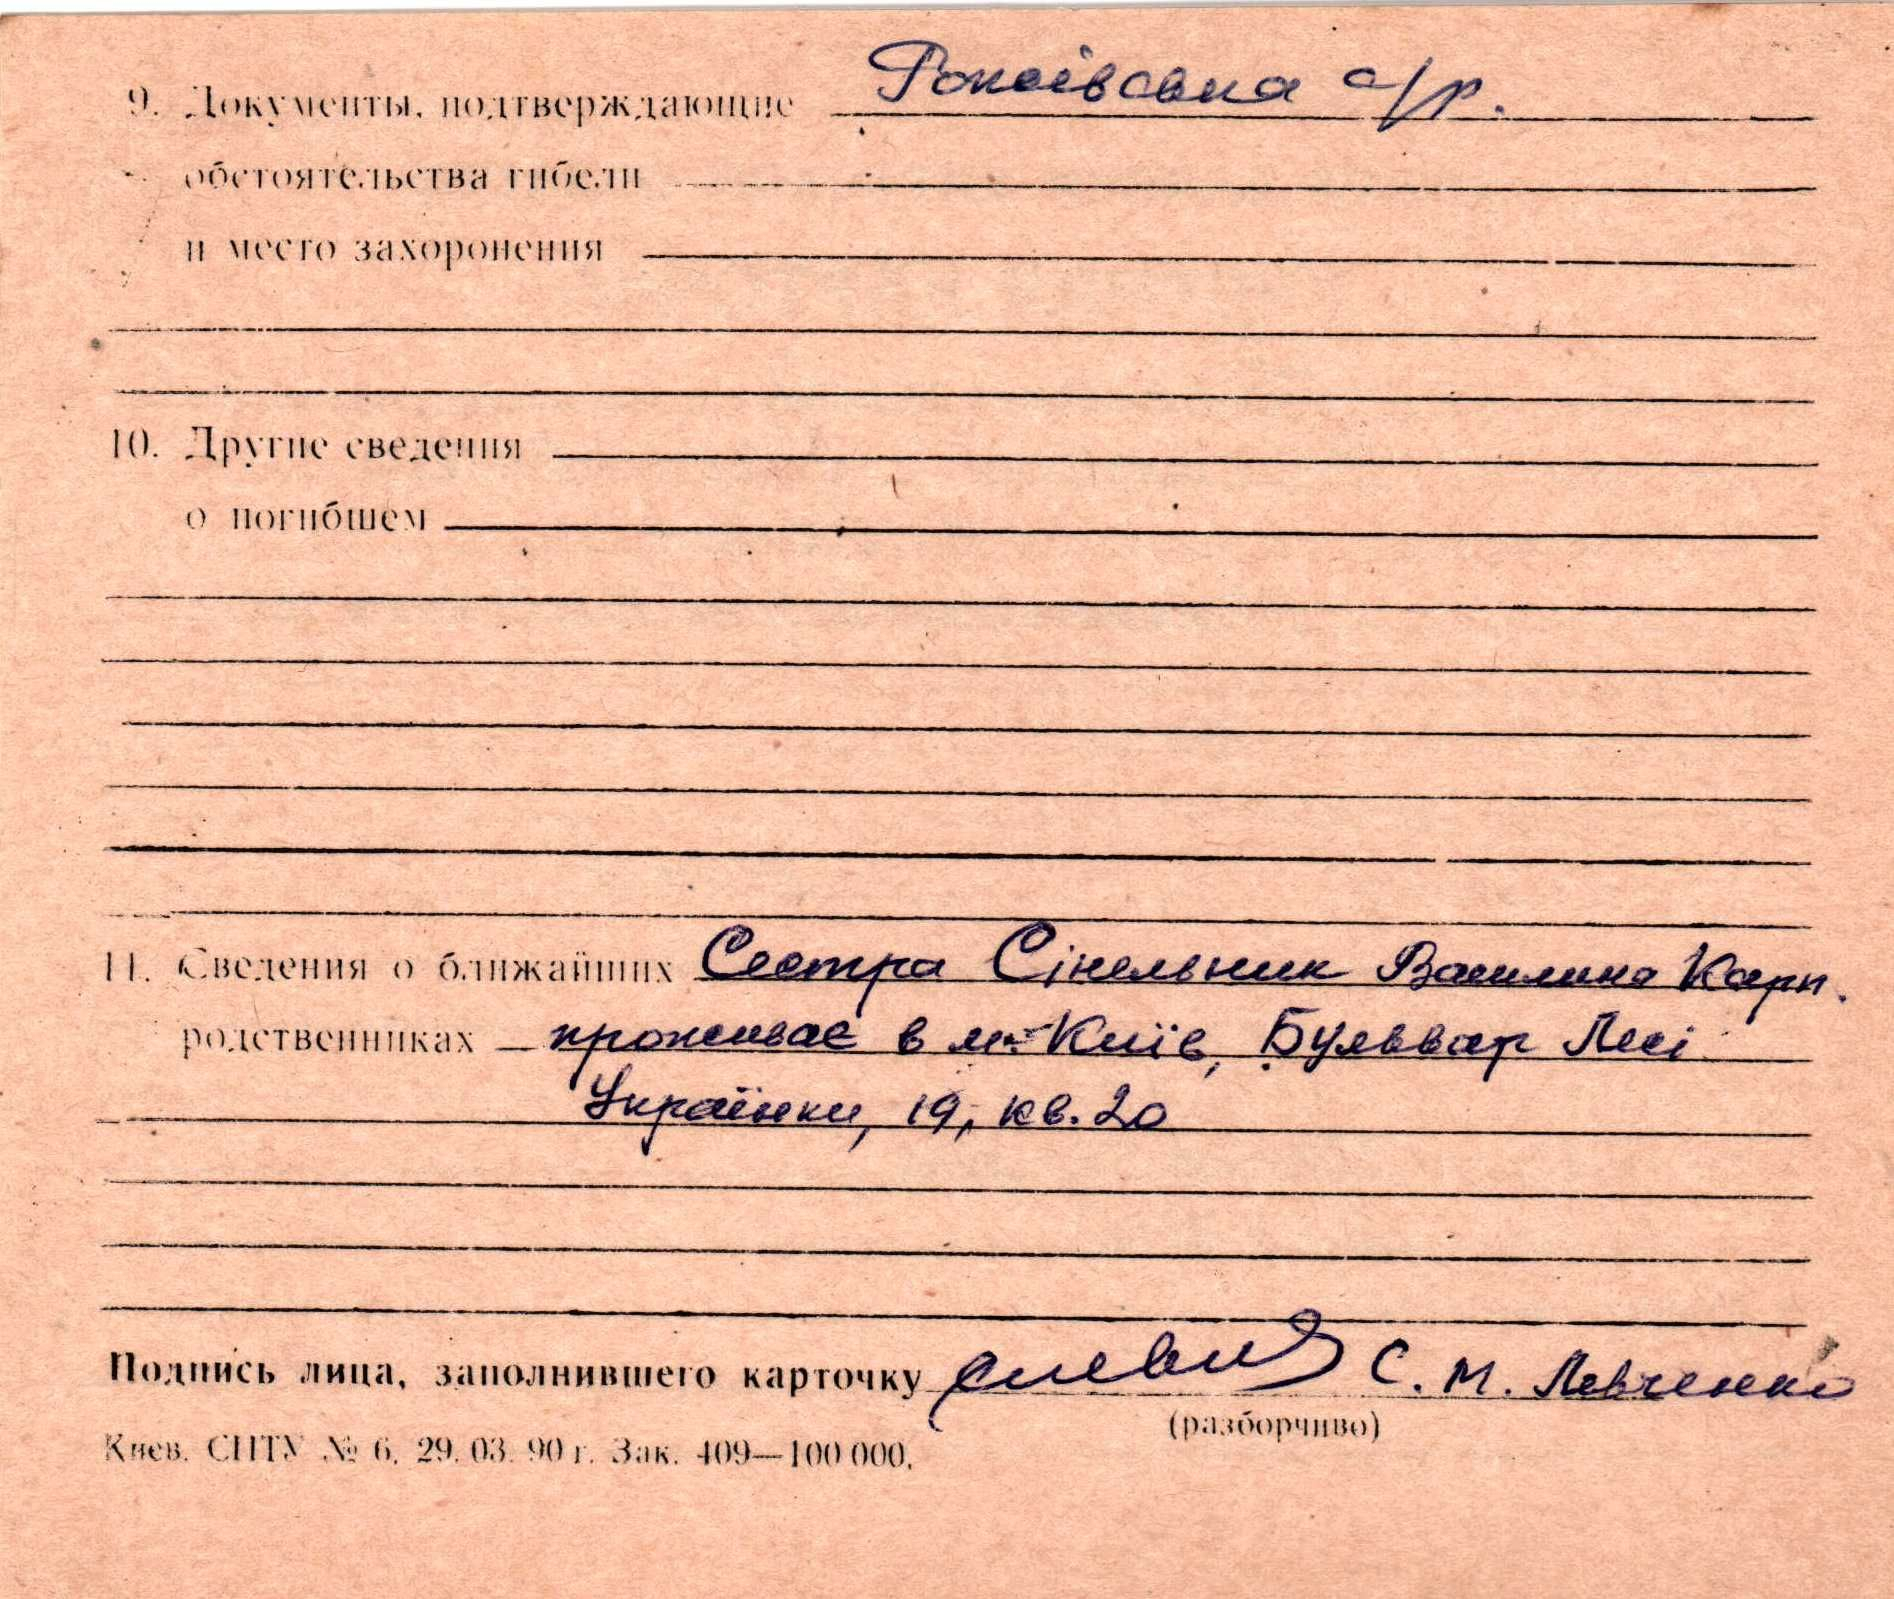 9. Документы, подтверждающие с/р.
обстоятельства гибели
и место захоронения
10. Другие сведения
о погибшем
11. Сведения о ближайших Сестра Сінельник Василина Карп.
родственниках проживає в м. Київ, Бульвар Лесі
Українки, 19, кв. 20
Подпись лица, заполнившего карточку С. М. Левченко
(разборчиво)
Киев. СПТУ № 6. 29. 03. 90 г. Зак. 409—100 000.